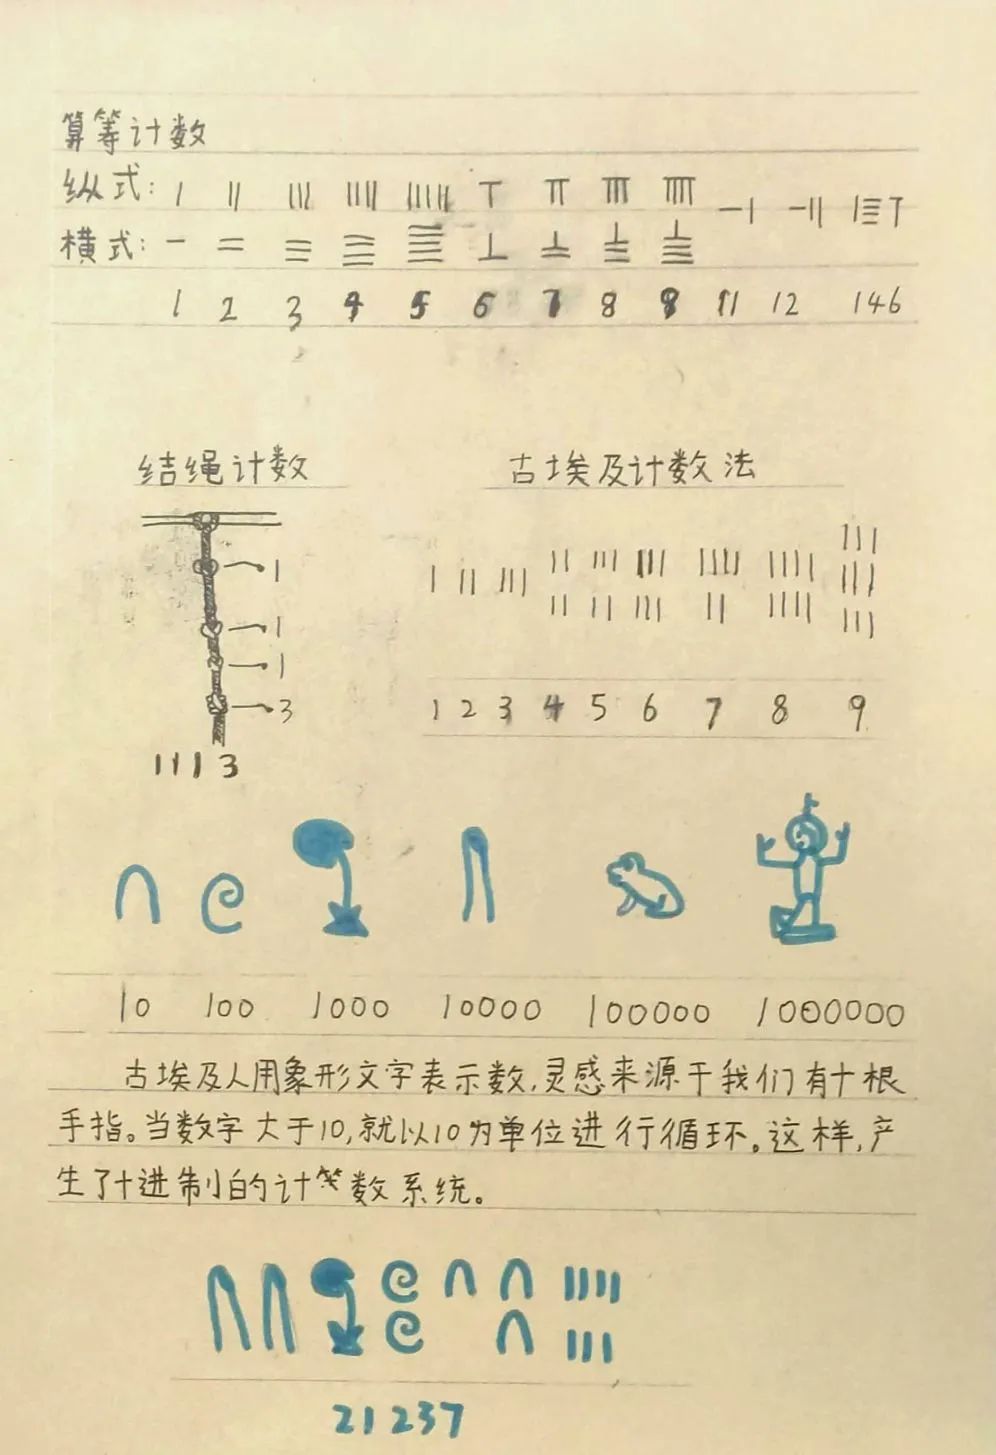 算筹计数
纵式:
横式:
1 2 3 4 5 6 7 8 9 11 12 146
结绳计数
1
1
1
3
1113
古埃及计数法
1 2 3 4 5 6 7 8 9
10 100 1000 10000 100000 1000000
古埃及人用象形文字表示数,灵感来源于我们有十根
手指。当数字大于10,就以10为单位进行循环。这样,产
生了十进制的计数系统。
21237